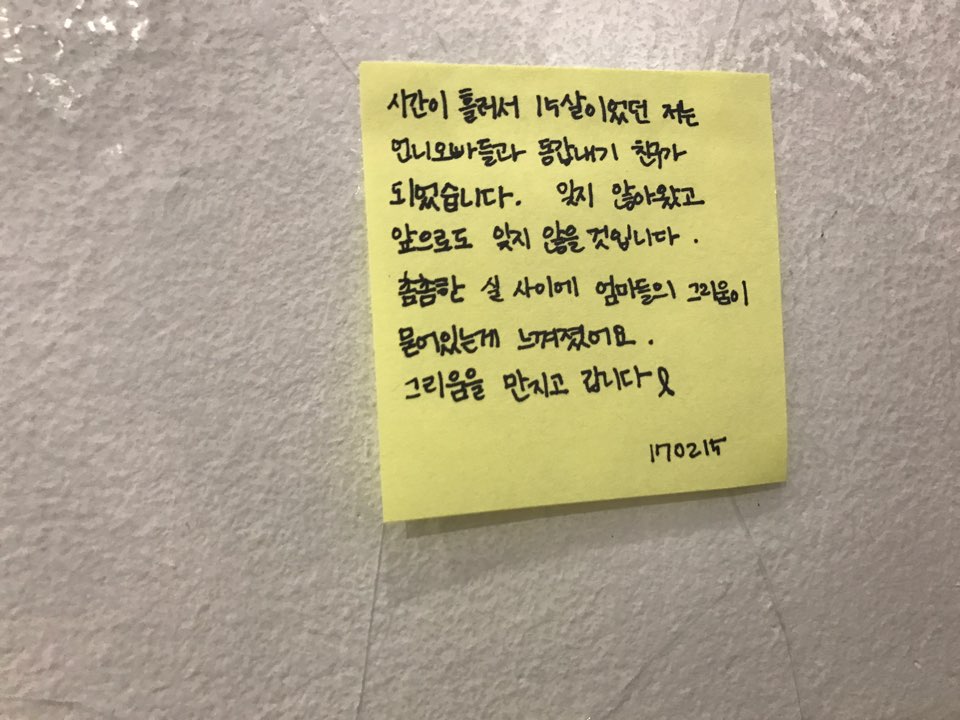 시간이 흘러서 15살이었던 저는
언니오빠들과 동갑내기 친구가
되었습니다. 잊지 않아왔고
앞으로도 잊지 않을 것입니다.
촘촘한 실 사이에 엄마들의 그리움이
묻어있는게 느껴졌어요.
그리움을 만지고 갑니다
170215